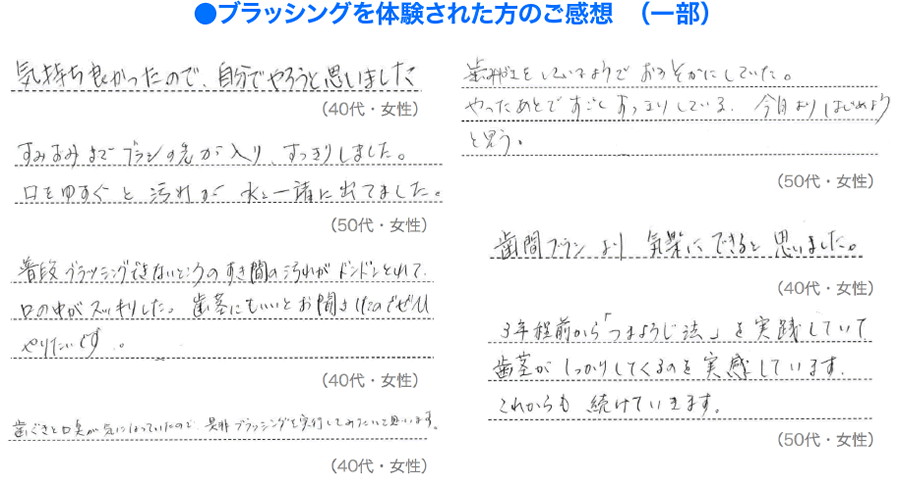 ●ブラッシングを体験された方のご感想　（一部）
気持ち良かったので、自分でやろうと思いました
（40代・女性）
すみずみまでブラシの先が入り、すっきりしました。
口をゆすぐと汚れが水と一緒に出てました。
（50代・女性）
普段ブラッシングできないところのすき間の汚れがドンドンとれて、
口の中がスッキリした。歯茎にもいいとお聞きしたのでぜひ
やりたいです。
（40代・女性）
歯ぐきと口臭が気になっていたので、是非ブラッシングを実行してみたいと思います。
（40代・女性）
歯みがきをしているようでおろそかにしていた。
やったあとですごくすっきりしている。今日よりはじめよう
と思う。
（50代・女性）
歯間ブラシより気楽にできると思いました。
（40代・女性）
3年程前から「つまようじ法」を実践していて
歯茎がしっかりしてくるのを実感しています。
これからも続けていきます。
（50代・女性）